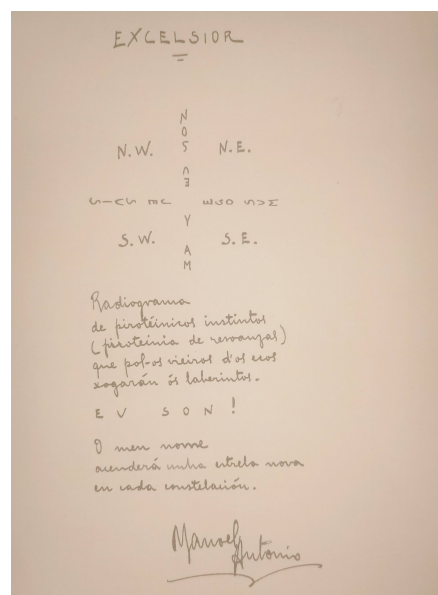 EXCELSIOR
N
O
N.W. S N.E.
U
E
Y
S.W. S.E.
A
M
Radiograma
de pirotéinicos instintos
(piroteinia de resoanzas)
que pol-os vieiros d'os ecos
xogarán ós laberintos.
E U S O N !
O meu nome
acenderá unha estrela nova
en cada constelación.
Manoel
Antonio